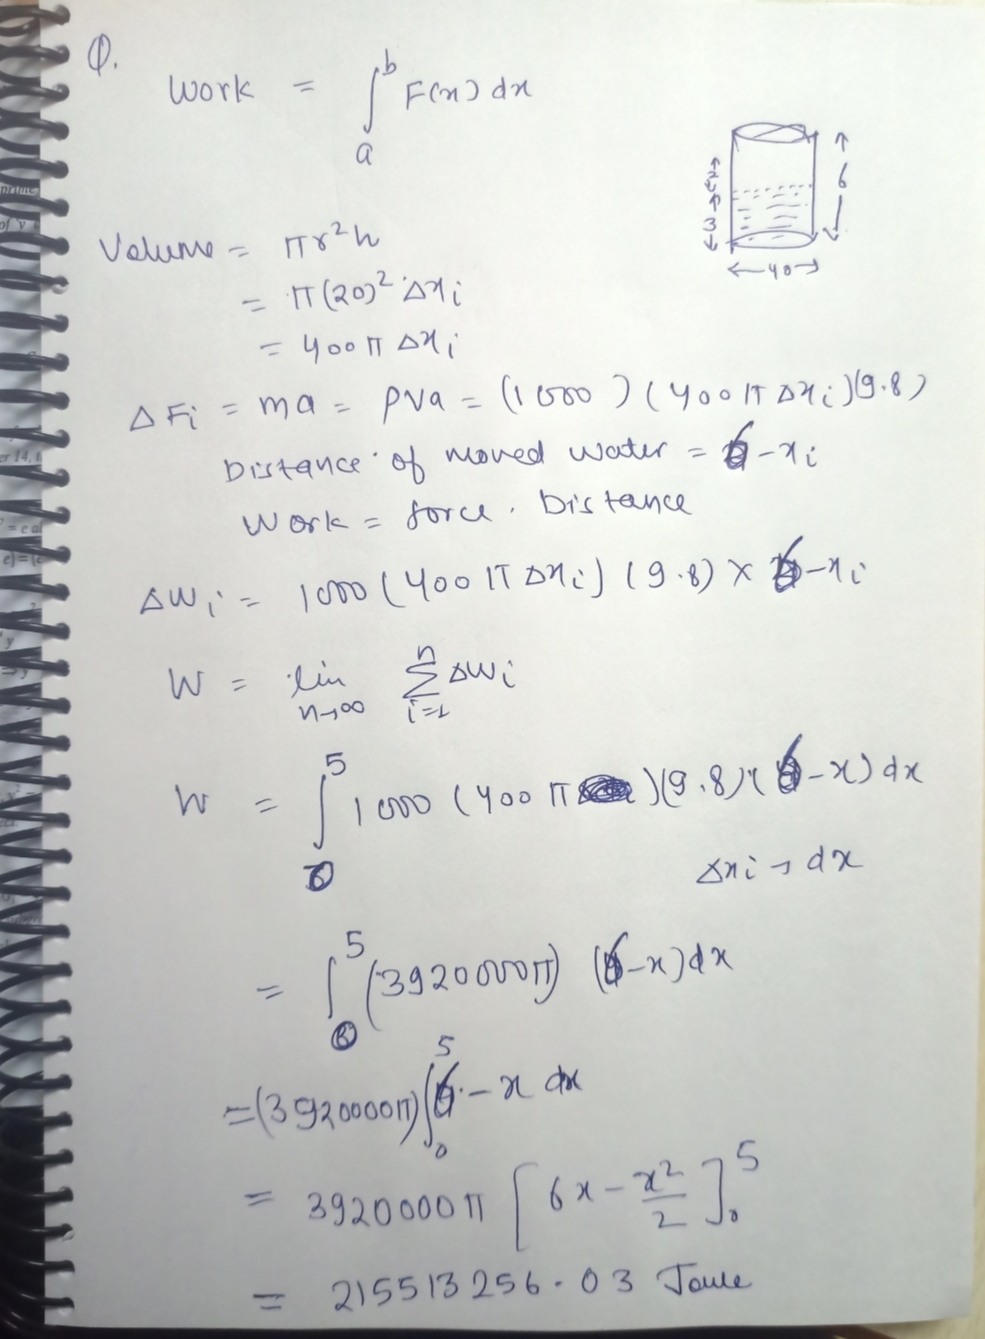 Q.
Work = ∫_a^b F(x) dx
2
3
6
40
Volume = πr²h
= π(20)² Δxᵢ
= 400π Δxᵢ
ΔFᵢ = ma = ρva = (1000) (400π Δxᵢ)(9.8)
Distance of moved water = 6-xᵢ
Work = force . Distance
ΔWᵢ = 1000 (400π Δxᵢ) (9.8) × 6-xᵢ
W = lim n→∞ Σ_{i=1}^n ΔWᵢ
W = ∫_0^5 1000 (400π)(9.8)(6-x) dx
Δxᵢ → dx
= ∫_0^5 (3920000π) (6-x)dx
=(3920000π) ∫_0^5 6-x dx
= 3920000π [6x - x²/2]_0^5
= 215513256.03 Joule